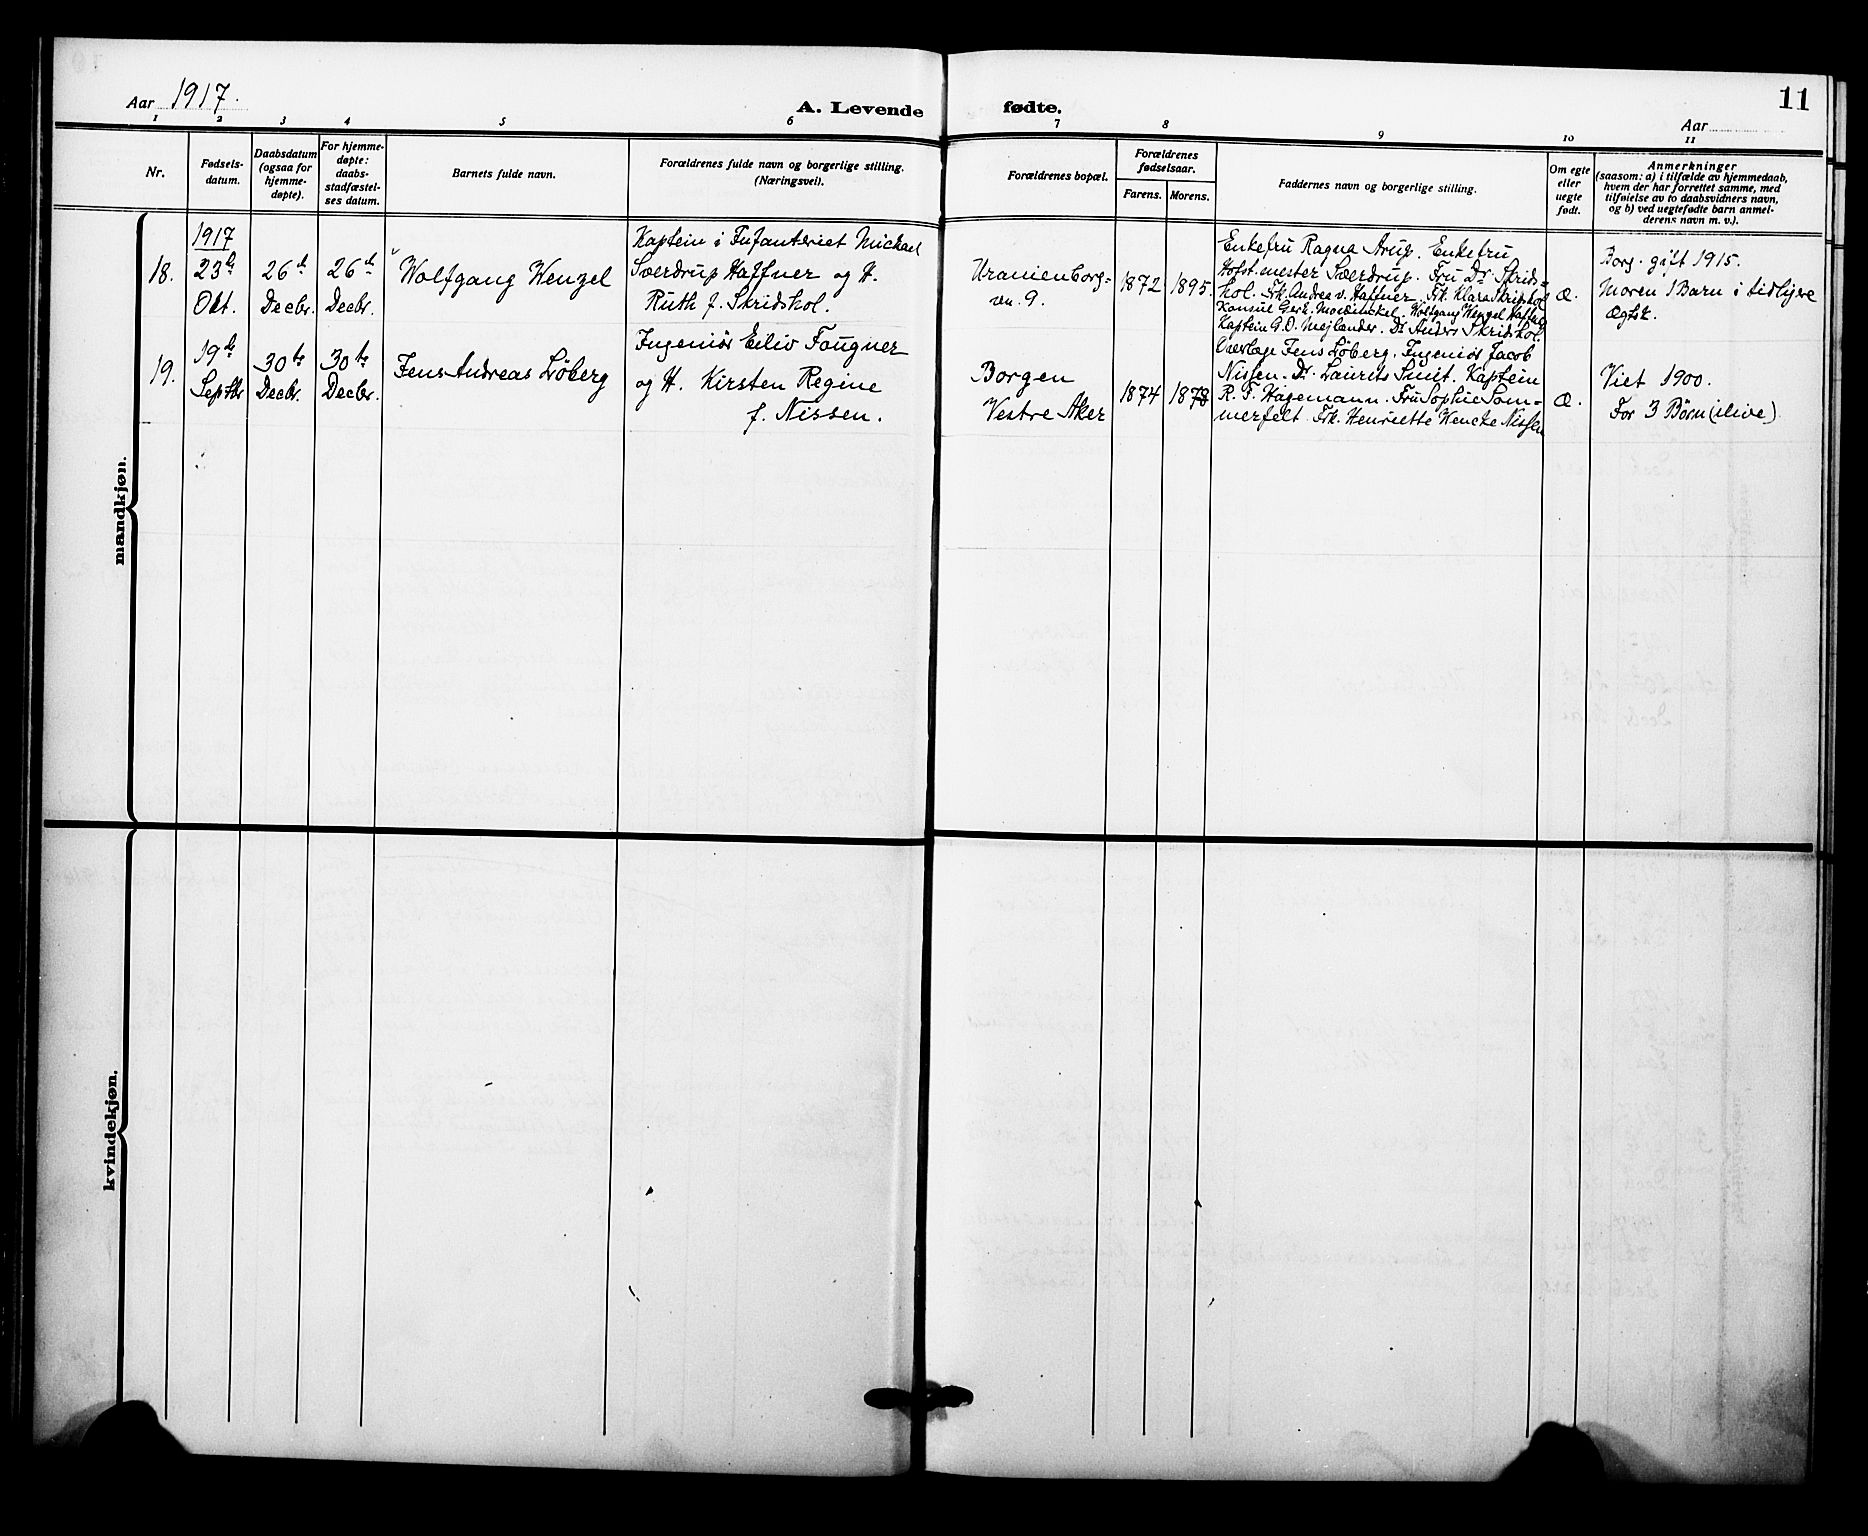 Aar 1917.
A. Levende
fødte.
11
Aar
1
2
3
4
5
6
7
8
9
10
11
Nr.
Fødsels-
datum.
Daabsdatum
(ogsaa for
hjemme-
døpte).
For hjemme-
døpte:
daabs-
stadfæstel-
ses datum.
Barnets fulde navn.
Forældrenes fulde navn og borgerlige stilling.
(Næringsvei).
Forældrenes bopæl.
Forældrenes
fødselsaar.
Farens.
Morens.
Faddernes navn og borgerlige stilling.
Om egte
eller
uegte
født.
Anmerkninger
(saasom: a) i tilfælde av hjemmedaab,
hvem der har forrettet samme, med
tilføielse av to daabsvidners navn,
og b) ved uegtefødte barn anmel-
derens navn m. v.).
mandkjøn.
18.
1917
23de
Okt.
26de
Decbr.
26de
Decbr.
Wolfgang Wenzel
Kaptein i Infanteriet Mickael
Sverdrup Haffner og H.
Ruth f. Skridshol.
Uranienborg-
vn. 9.
1872
1895.
Enkefru Ragna Arup. Enkefru
Hofst.mester Sverdrup. Fru Dr. Skrids-
hol. Frk. Andrea v. Haffner. Frk. Klara Skridshol
Konsul Gerh. Mowinckel. Wolfgang Wenzel Haffner
Kaptein G. O. Mejlænder. Dr Anders Skridshol.
Æ.
Borg. gift 1915.
Moren 1 Barn i tidligere
Ægtsk.
19.
19de
Septbr
30te
Decbr.
30te
Decbr.
Jens Andreas Løberg
Ingeniør Eiliv Fougner
og H. Kirsten Regine
f. Nissen.
Borgen
Vestre Aker
1874
1878
Overlæge Jens Løberg. Ingeniør Jacob
Nissen. Dr. Laurits Smit. Kaptein
R. F. Hagemann. Fru Sophie Som-
merfelt. Frk. Henriette Wencke Nissen
Æ.
Viet 1900.
Før 3 Børn (ilive)
kvindekjøn.